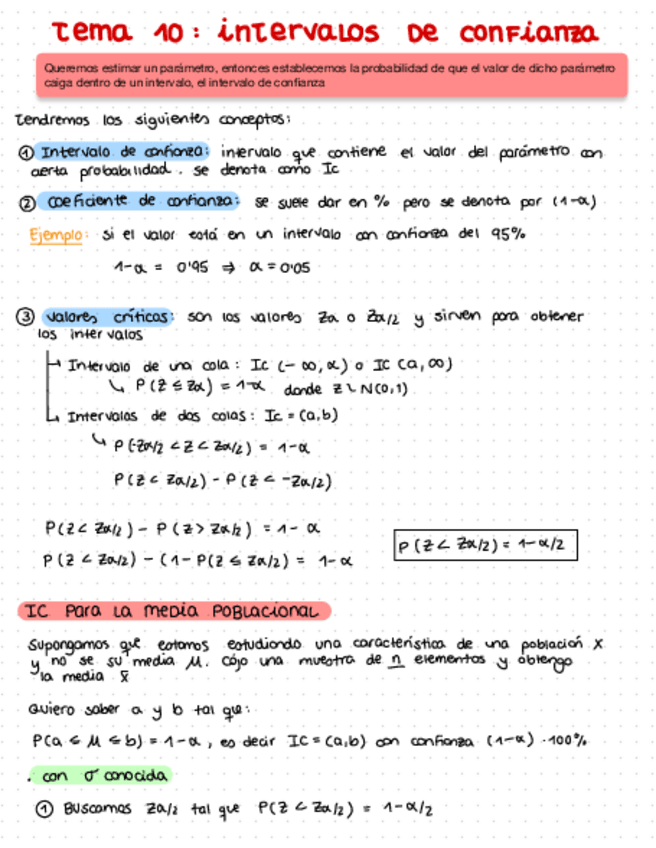 Tema 10: intervalos de confianza
Queremos estimar un parámetro, entonces establecemos la probabilidad de que el valor de dicho parámetro
caiga dentro de un intervalo, el intervalo de confianza
Tendremos los siguientes conceptos:
① Intervalo de confianza: intervalo que contiene el valor del parámetro con
cierta probabilidad. se denota como Ic
② coeficiente de confianza: se suele dar en % pero se denota por (1-α)
Ejemplo: si el valor está en un intervalo con confianza del 95%
1-α = 0'95 ⇒ α = 0'05
③ valores críticos: son los valores Zα o Zα/2 y sirven para obtener
los intervalos
→ Intervalo de una cola: Ic (-∞, α) o IC (a, ∞)
↳ P(Z ≤ Zα) = 1-α donde Z ~ N(0,1)
↳ Intervalos de dos colas: Ic = (a,b)
↳ P(-Zα/2 < Z < Zα/2) = 1-α
P(Z < Zα/2) - P(Z < -Zα/2)
P(Z < Zα/2) - P(Z > Zα/2) = 1-α
P(Z < Zα/2) - (1-P(Z ≤ Zα/2) = 1-α
P(Z < Zα/2) = 1-α/2
IC Para La media PoBLacionaL
Supongamos que estamos estudiando una característica de una población X
y no se su media μ. cojo una muestra de n elementos y obtengo
la media x̄
Quiero saber a y b tal que:
P(a ≤ μ ≤ b) = 1-α, es decir IC = (a,b) con confianza (1-α)·100%
. con σ conocida
① Buscamos Zα/2 tal que P(Z < Zα/2) = 1-α/2